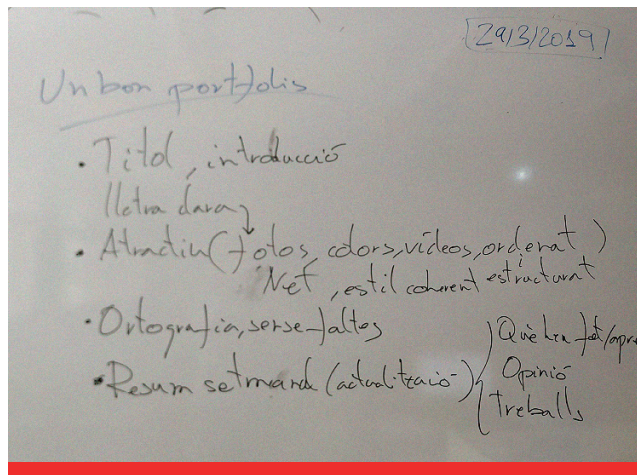 29/3/2019
Un bon portfolis
• Titol, introducció
lletra clara
• Atractiu (fotos, colors, vídeos, ordenat)
Net, estil coherent i estructurat
• Ortografia, sense faltes
• Resum setmanal (actualització)
Què hem fet/apre
Opinió
Treballs